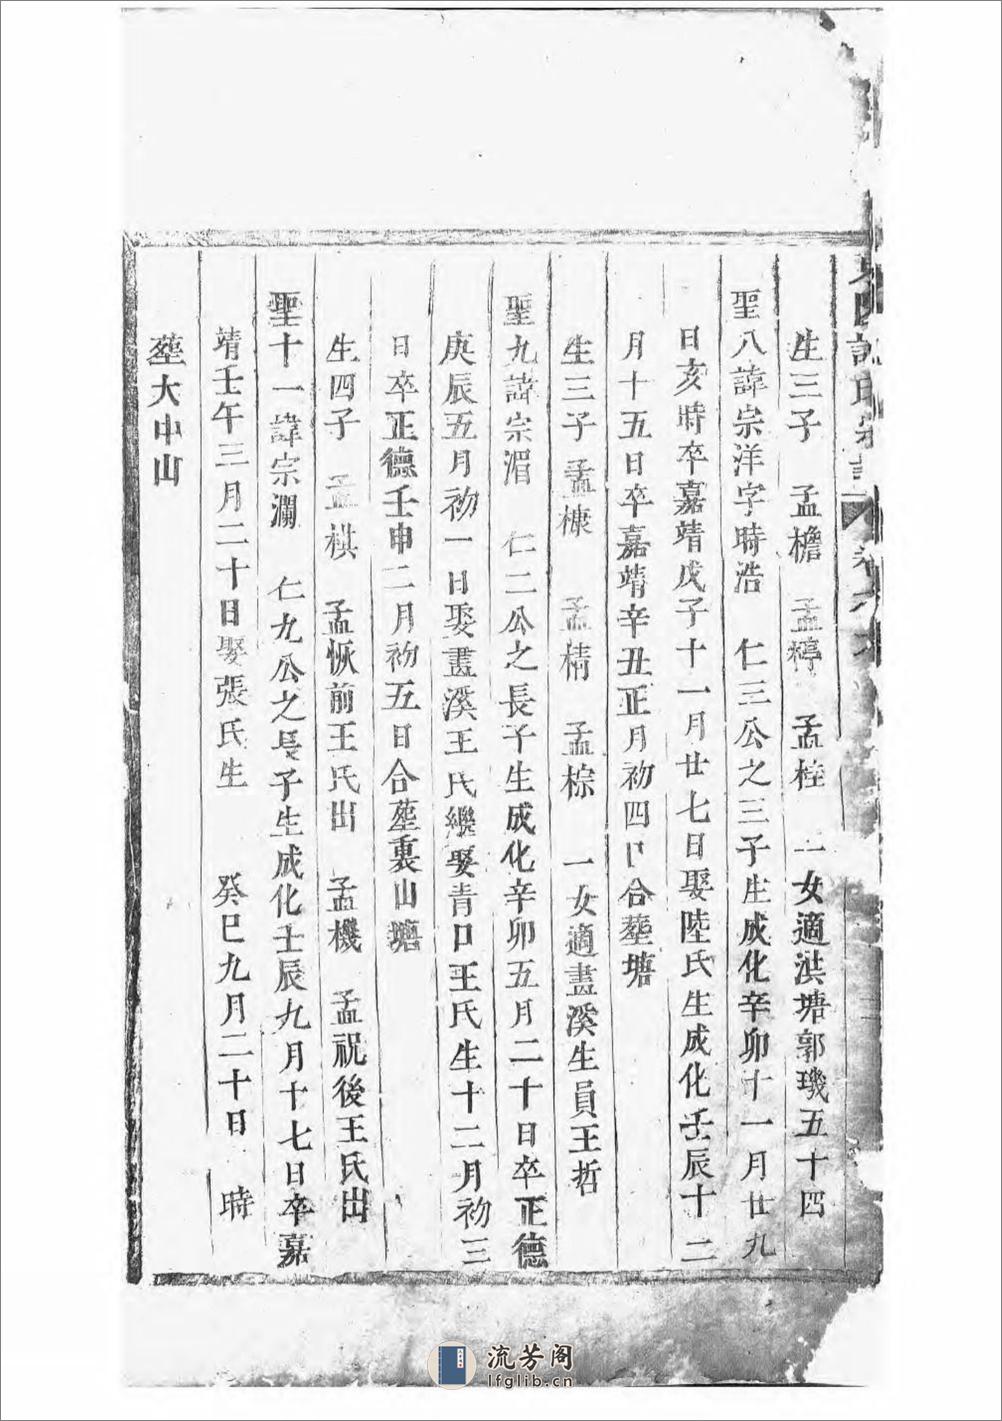 生三子 孟檐 孟㯬 孟桎 二女適洪塘郭璣五十四
聖八諱宗洋字時浩 仁三公之三子生成化辛卯十一月廿九
日亥時卒嘉靖戊子十一月廿七日娶陸氏生成化壬辰十二
月十五日卒嘉靖辛丑正月初四日合塟塘
生三子 孟槺 孟棈 孟棕 一女適畫溪生員王哲
聖九諱宗湄 仁二公之長子生成化辛卯五月二十日卒正德
庚辰五月初一日娶畫溪王氏繼娶青口王氏生十二月初三
日卒正德壬申二月初五日合塟裏山塘
生四子 孟棋 孟恢前王氏出 孟機 孟祝後王氏出
聖十一諱宗瀾 仁九公之長子生成化壬辰九月十七日卒嘉
靖壬午三月二十日娶張氏生 癸巳九月二十日 時
塟大中山
流芳阁
lfglib.cn